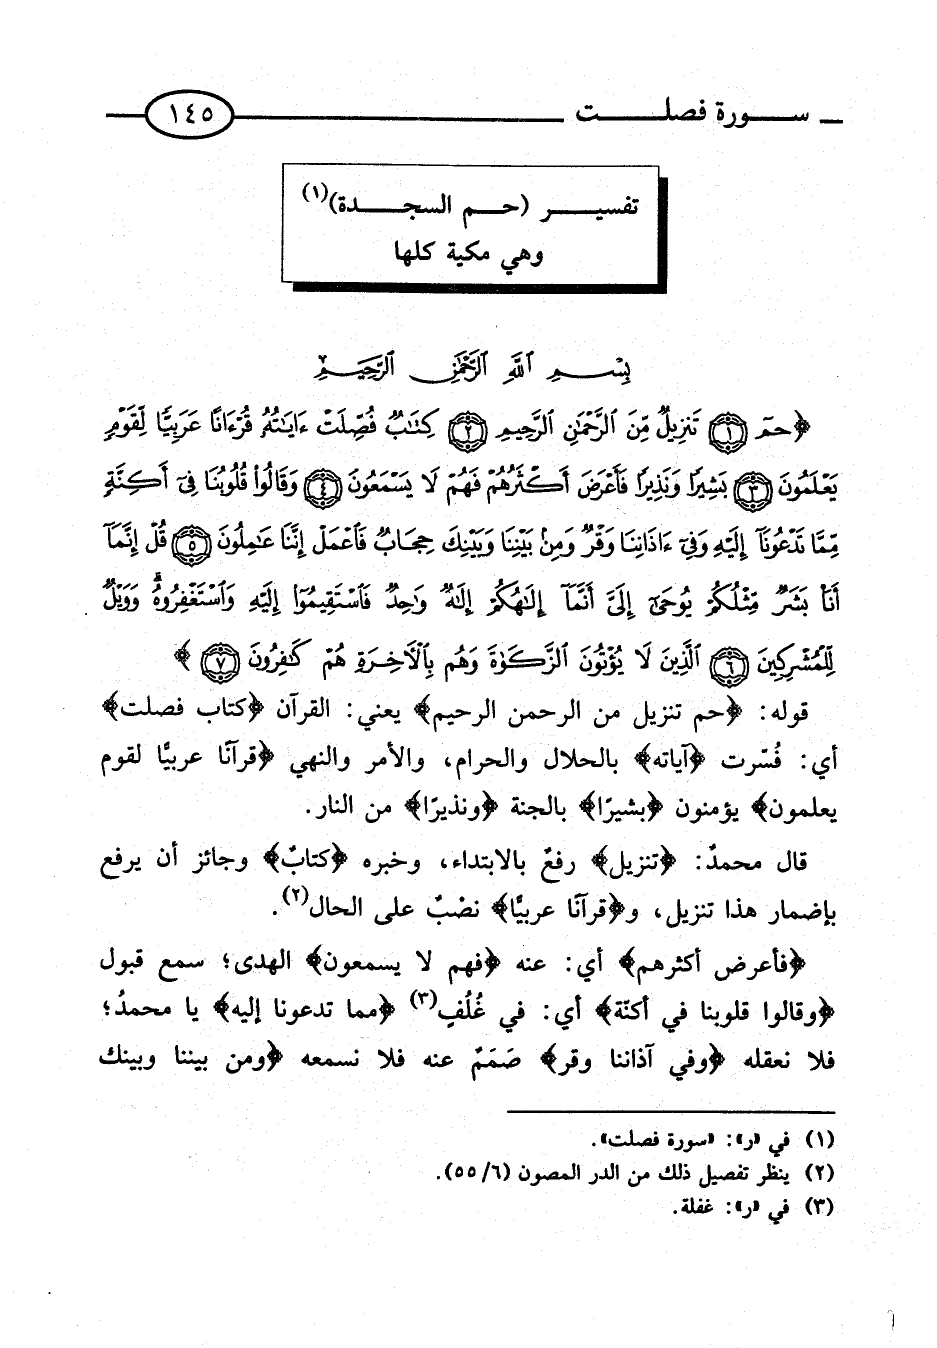 سورة فصلت ١٤٥
تفسير (حم السجدة)(١)
وهي مكية كلها
بِسْمِ اللَّهِ الرَّحْمَٰنِ الرَّحِيمِ
﴿حمٓ ١ تَنزِيلٌ مِّنَ الرَّحْمَٰنِ الرَّحِيمِ ٢ كِتَٰبٌ فُصِّلَتْ ءَايَٰتُهُۥ قُرْءَانًا عَرَبِيًّا لِّقَوْمٍ
يَعْلَمُونَ ٣ بَشِيرًا وَنَذِيرًا فَأَعْرَضَ أَكْثَرُهُمْ فَهُمْ لَا يَسْمَعُونَ ٤ وَقَالُوا۟ قُلُوبُنَا فِىٓ أَكِنَّةٍ
مِّمَّا تَدْعُونَآ إِلَيْهِ وَفِىٓ ءَاذَانِنَا وَقْرٌ وَمِنۢ بَيْنِنَا وَبَيْنِكَ حِجَابٌ فَٱعْمَلْ إِنَّنَا عَٰمِلُونَ ٥ قُلْ إِنَّمَآ
أَنَا۠ بَشَرٌ مِّثْلُكُمْ يُوحَىٰٓ إِلَىَّ أَنَّمَآ إِلَٰهُكُمْ إِلَٰهٌ وَٰحِدٌ فَٱسْتَقِيمُوٓا۟ إِلَيْهِ وَٱسْتَغْفِرُوهُ ۗ وَوَيْلٌ
لِّلْمُشْرِكِينَ ٦ ٱلَّذِينَ لَا يُؤْتُونَ ٱلزَّكَوٰةَ وَهُم بِٱلْءَاخِرَةِ هُمْ كَٰفِرُونَ ٧﴾
قوله: ﴿حم تنزيل من الرحمن الرحيم﴾ يعني: القرآن ﴿كتاب فصلت﴾
أي: فُسّرت ﴿آياته﴾ بالحلال والحرام، والأمر والنهي ﴿قرآنًا عربيًّا لقوم
يعلمون﴾ يؤمنون ﴿بشيرًا﴾ بالجنة ﴿ونذيرًا﴾ من النار.
قال محمدٌ: ﴿تنزيل﴾ رفعٌ بالابتداء، وخبره ﴿كتابٌ﴾ وجائز أن يرفع
بإضمار هذا تنزيل، و﴿قرآنًا عربيًّا﴾ نصْبٌ على الحال(٢).
﴿فأعرض أكثرهم﴾ أي: عنه ﴿فهم لا يسمعون﴾ الهدى؛ سمع قبول
﴿وقالوا قلوبنا في أكنّة﴾ أي: في غُلُفٍ(٣) ﴿مما تدعونا إليه﴾ يا محمدُ؛
فلا نعقله ﴿وفي آذاننا وقر﴾ صَمَمٌ عنه فلا نسمعه ﴿ومن بيننا وبينك
(١) في «ر»: «سورة فصلت».
(٢) ينظر تفصيل ذلك من الدر المصون (٦/ ٥٥).
(٣) في «ر»: غفلة.